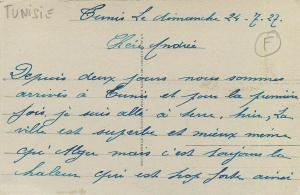 TUNISIE
Tunis Le dimanche 24-7-27.
F
Chère Andrée
Depuis deux jours nous sommes
arrivés à Tunis et pour la première
fois, je suis allé à terre, hier, La
ville est superbe et mieux même
qu'Alger mais c'est toujours la
chaleur qui est trop forte ainsi